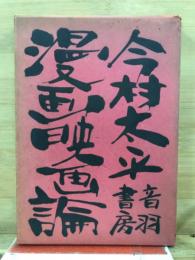 今村太平
漫画映画論
音羽書房